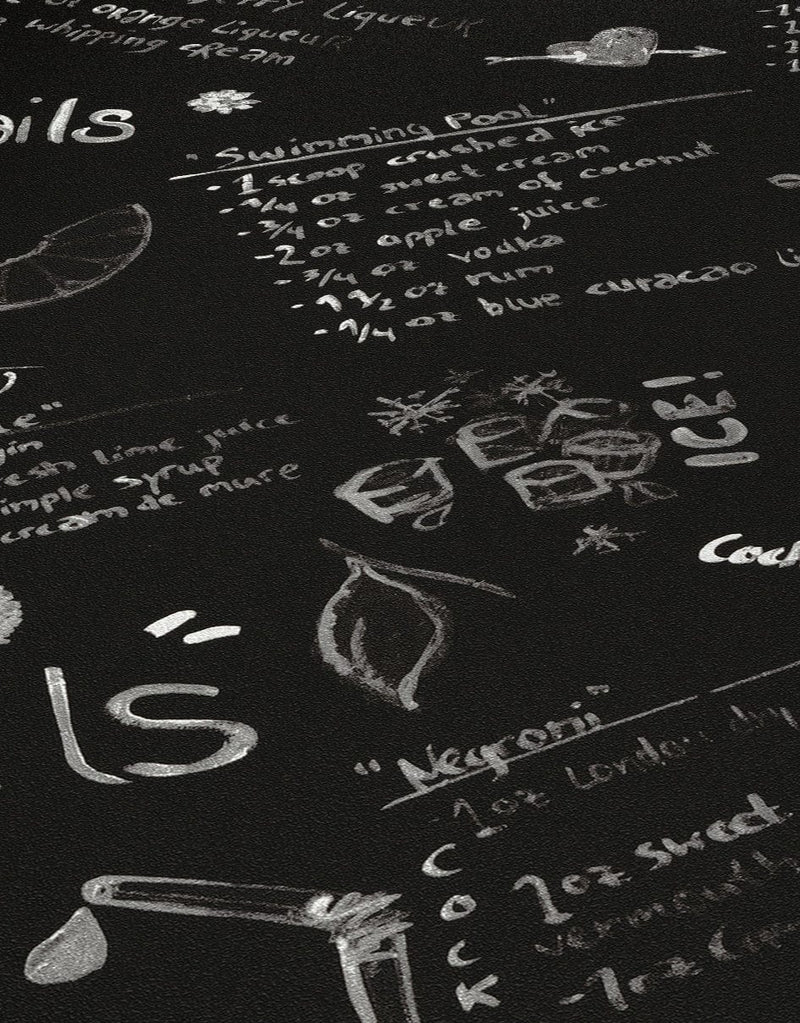 orange Liqueur
whipping cream
Liqueur
ails
"Swimming Pool"
- 1 scoop crushed ice
- 1/4 oz sweet cream
- 3/4 oz cream of coconut
- 2 oz apple juice
- 3/4 oz vodka
- 1 1/2 oz rum
- 1/4 oz blue curacao Li
le"
gin
resh lime juice
imple syrup
cream de mure
ICE!
Cock
ls"
"Negroni"
- 1 oz London dry
1 oz sweet
vermouth
- 1 oz Cam
C
O
C
K